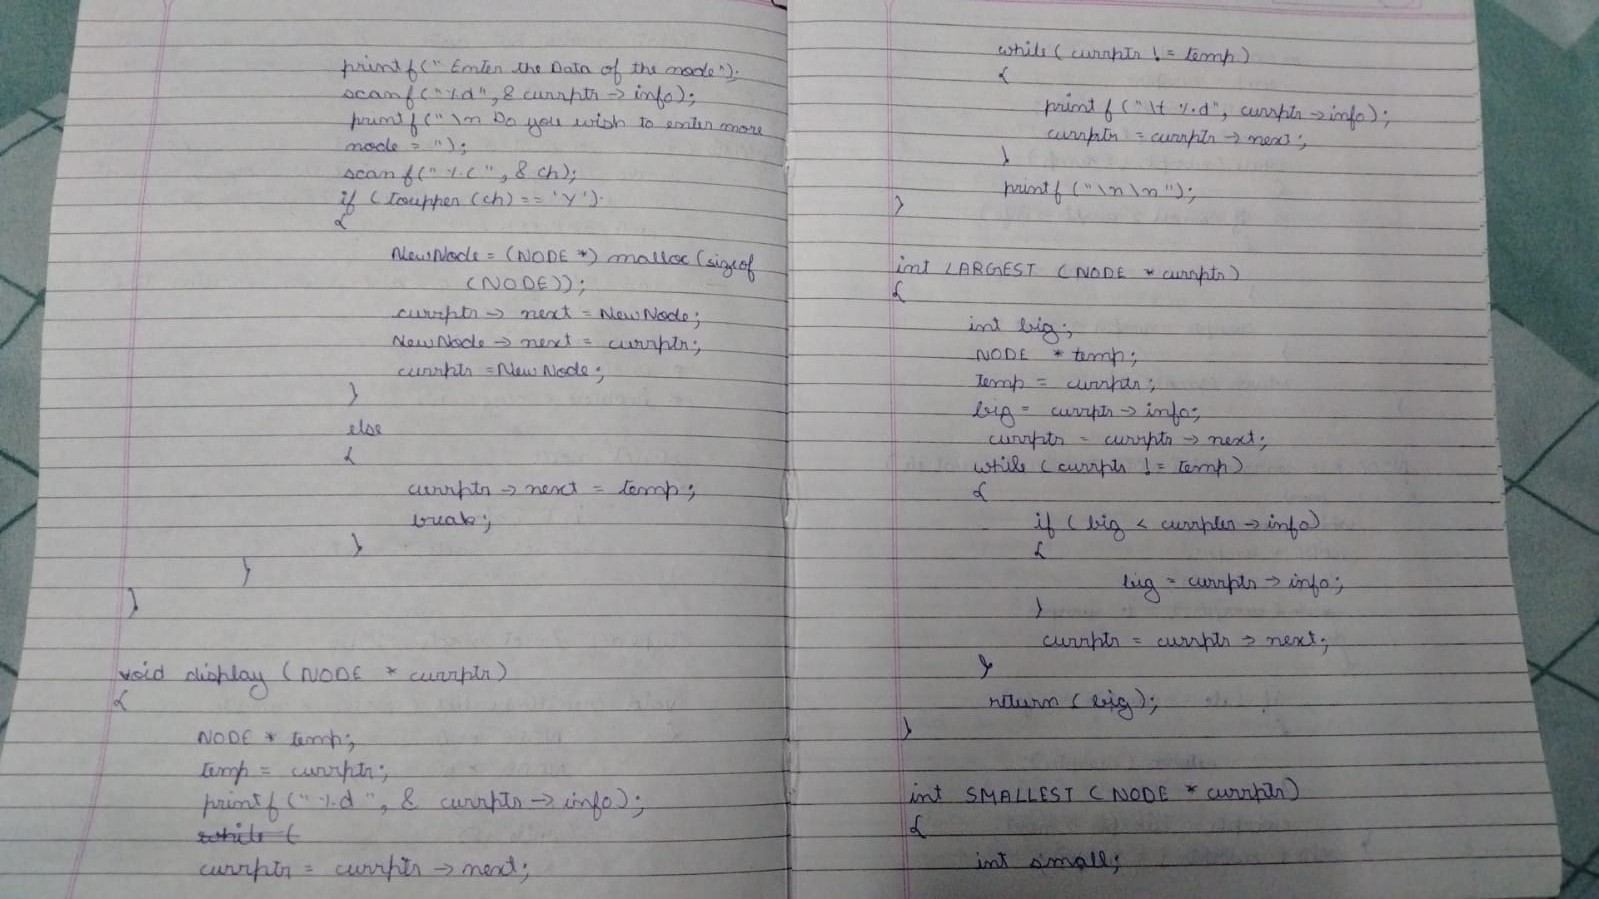 printf(" Enter the Data of the node");
scanf("%d", & currptr -> info);
printf("\n Do you wish to enter more
node = ");
scanf("%c", & ch);
if (toupper (ch) == 'Y')
{
NewNode = (NODE *) malloc (sizeof
(NODE));
currptr -> next = NewNode;
NewNode -> next = currptr;
currptr = NewNode;
}
else
{
currptr -> next = temp;
break;
}
}
}
void display (NODE * currptr)
{
NODE * temp;
temp = currptr;
printf("%d", & currptr -> info);
while (
currptr = currptr -> next;
while (currptr != temp)
{
printf("\t %d", currptr -> info);
currptr = currptr -> next;
}
printf("\n\n");
}
int LARGEST (NODE * currptr)
{
int big;
NODE * temp;
temp = currptr;
big = currptr -> info;
currptr = currptr -> next;
while (currptr != temp)
{
if (big < currpter -> info)
{
big = currptr -> info;
}
currptr = currptr -> next;
}
return (big);
}
int SMALLEST (NODE * currptr)
{
int small;